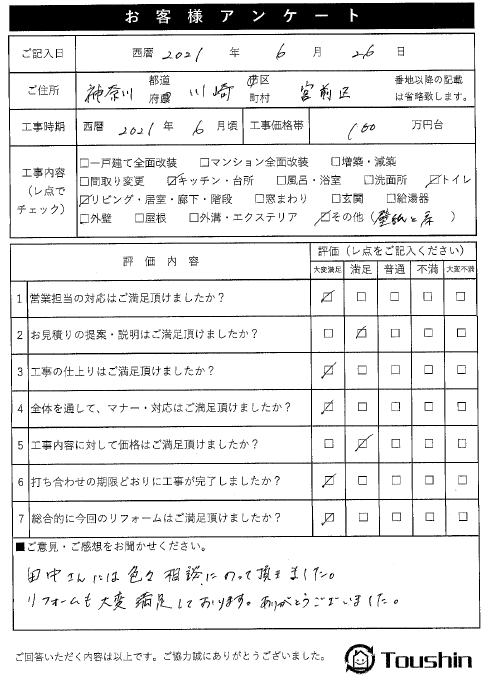 お客様アンケート
ご記入日 西暦 2021 年 6 月 26 日
ご住所 神奈川 都道府県 川崎 市区町村 宮前区 番地以降の記載は省略致します。
工事時期 西暦 2021 年 6 月頃 工事価格帯 100 万円台
工事内容（レ点でチェック）
□一戸建て全面改装 □マンション全面改装 □増築・減築
□間取り変更 ☑キッチン・台所 □風呂・浴室 □洗面所 ☑トイレ
☑リビング・居室・廊下・階段 □窓まわり □玄関 □給湯器
□外壁 □屋根 □外溝・エクステリア ☑その他（壁紙と床）
評価内容 評価（レ点をご記入ください）
大変満足 満足 普通 不満 大変不満
1 営業担当の対応はご満足頂けましたか？ ☑ □ □ □ □
2 お見積りの提案・説明はご満足頂けましたか？ □ ☑ □ □ □
3 工事の仕上りはご満足頂けましたか？ ☑ □ □ □ □
4 全体を通して、マナー・対応はご満足頂けましたか？ ☑ □ □ □ □
5 工事内容に対して価格はご満足頂けましたか？ □ ☑ □ □ □
6 打ち合わせの期限どおりに工事が完了しましたか？ ☑ □ □ □ □
7 総合的に今回のリフォームはご満足頂けましたか？ ☑ □ □ □ □
■ご意見・ご感想をお聞かせください。
田中さんには色々相談にのって頂きました。
リフォームも大変満足しております。ありがとうございました。
ご回答いただく内容は以上です。ご協力誠にありがとうございました。
Toushin